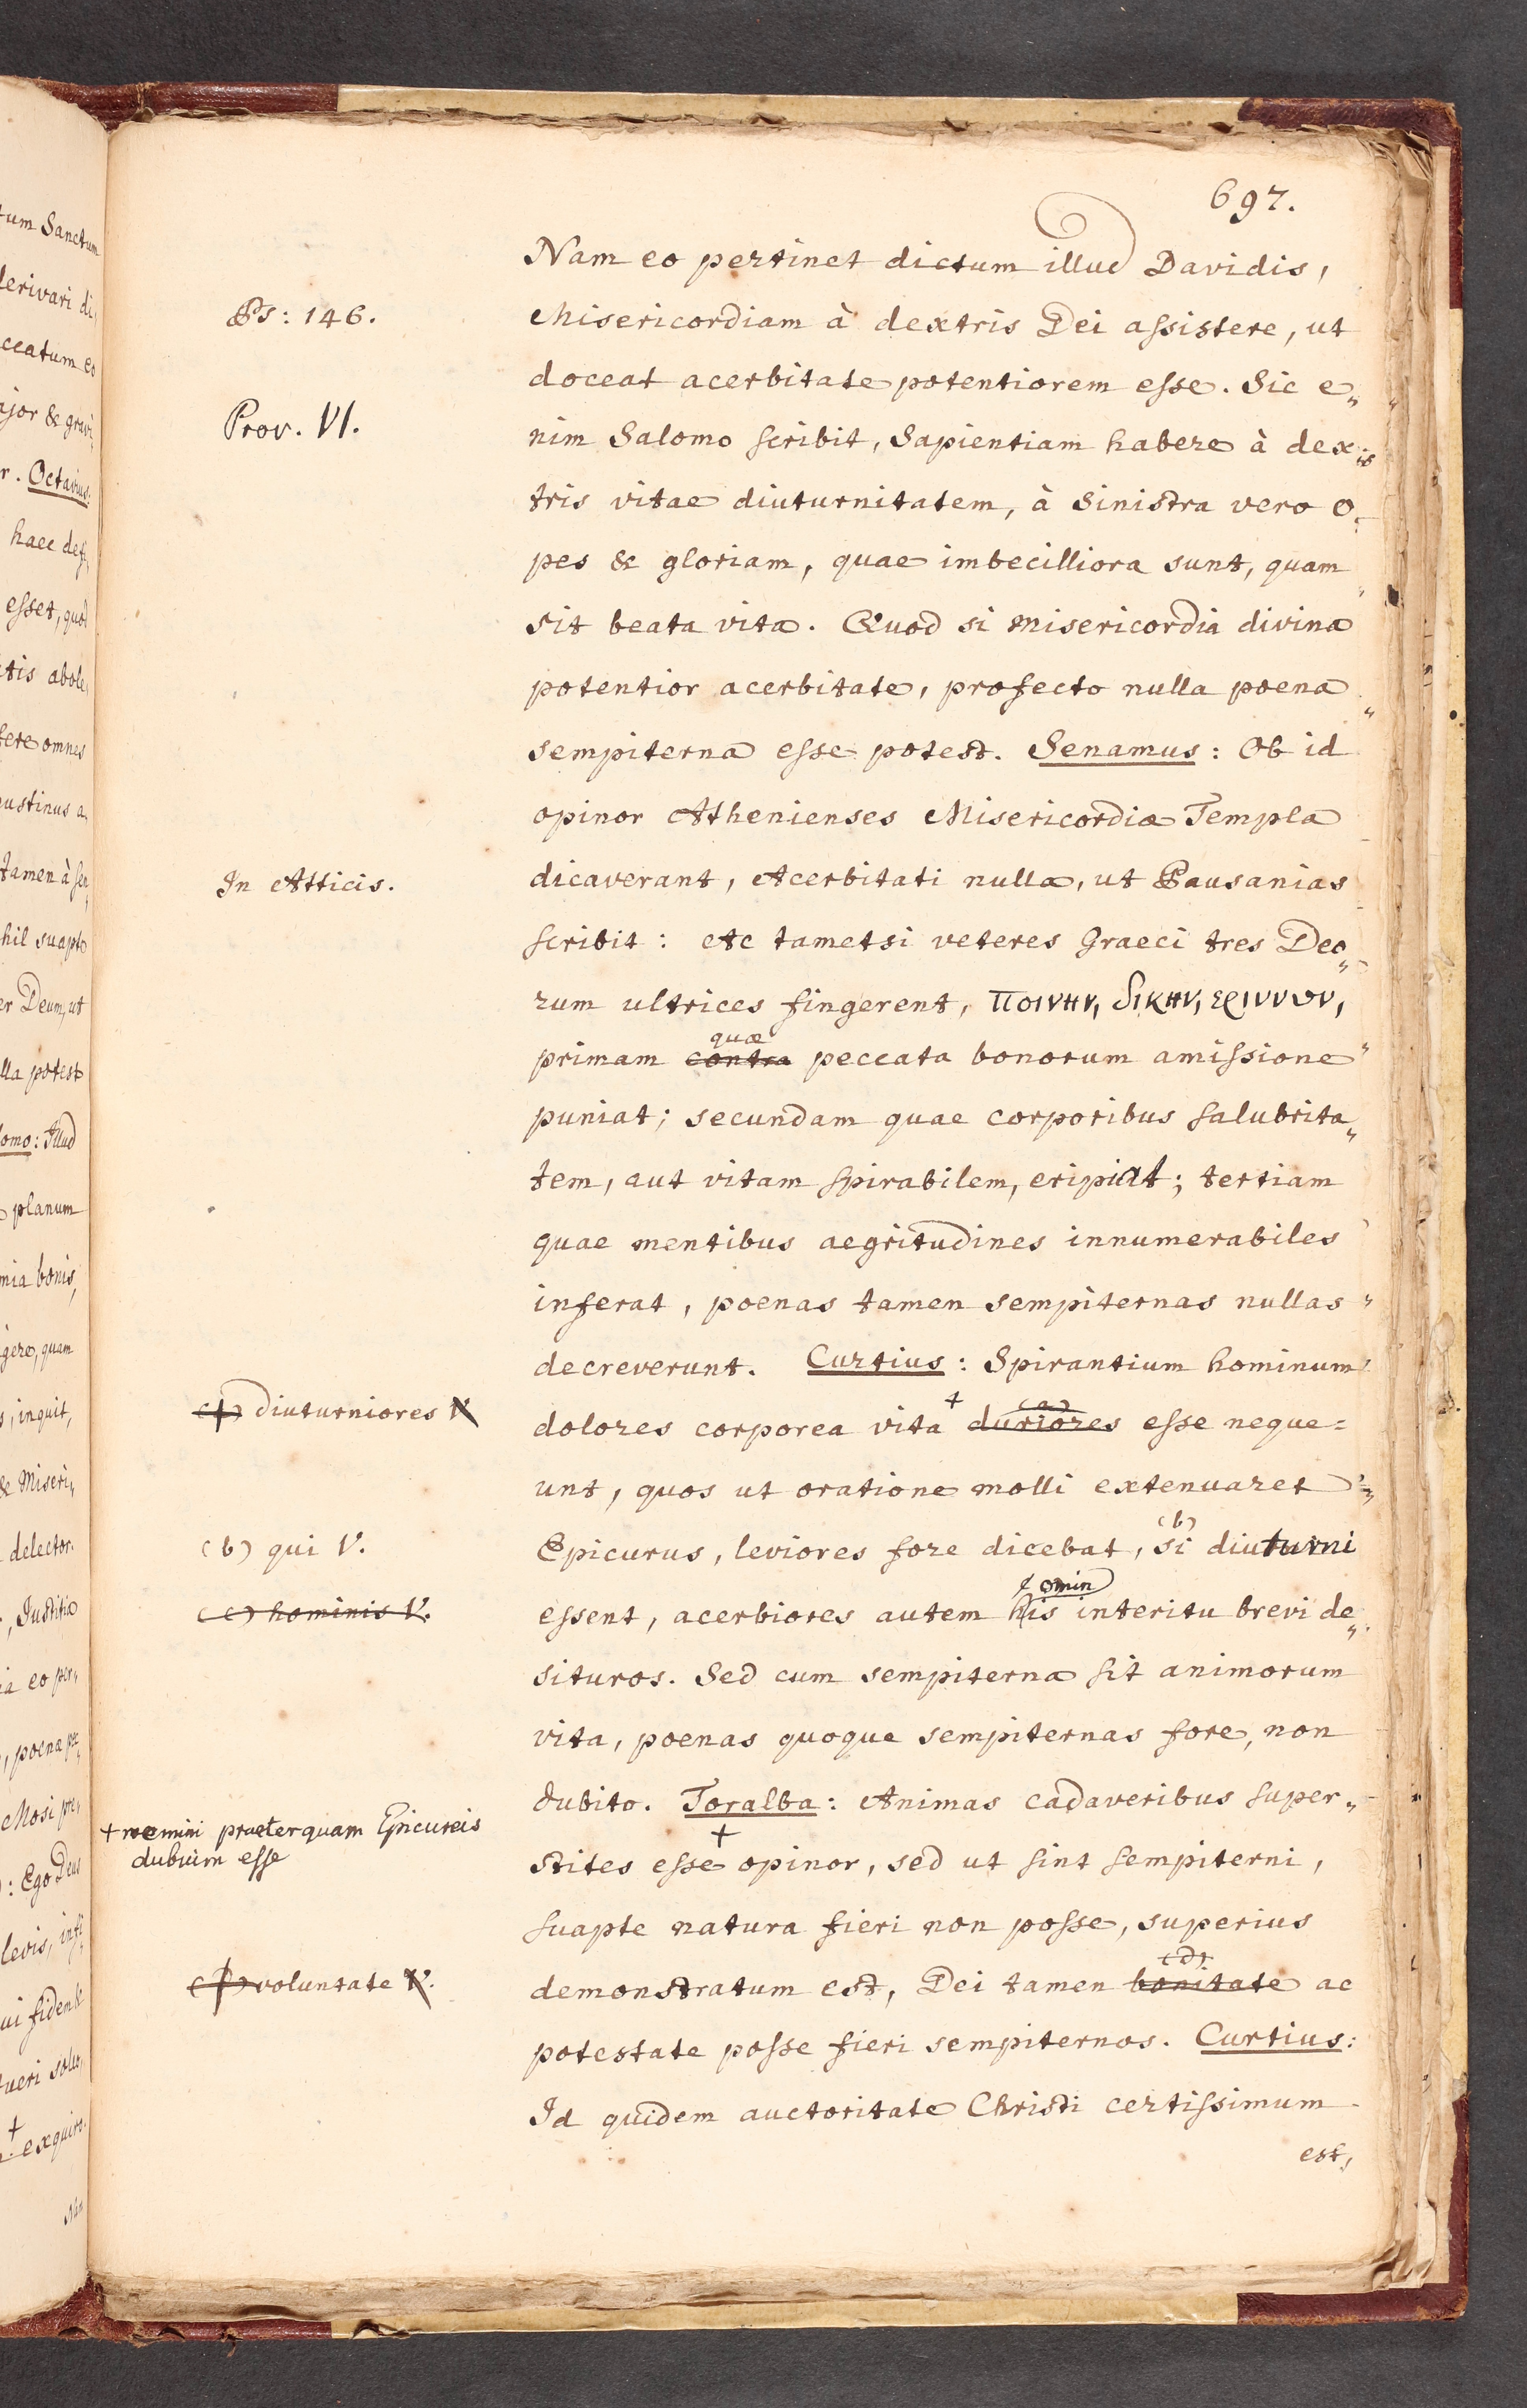 697.
Nam eo pertinet dictum illud Davidis,
Ps: 146.
Misericordiam à dextris Dei assistere, ut
doceat acerbitate potentiorem esse. Sic e„
Prov. VI.
nim Salomo scribit, Sapientiam habere à dex„
tris vitae diuturnitatem, à sinistra vero o„
pes & gloriam, quae imbecilliora sunt, quam
sit beata vita. Quod si misericordia divina
potentior acerbitate, profecto nulla poena
sempiterna esse potest. Senamus: Ob id
opinor Athenienses Misericordiæ Templa
In Atticis.
dicaverant, Acerbitati nulla, ut Pausanias
scribit: Ac tametsi veteres Graeci tres Deo„
rum ultrices fingerent, ποινην, δικην, εριννυν,
quæ
primam contra peccata bonorum amissione
puniat; secundam quae corporibus salubrita„
tem, aut vitam spirabilem, eripiat; tertiam
quae mentibus aegritudines innumerabiles
inferat, poenas tamen sempiternas nullas
decreverunt. Curtius: Spirantium hominum
(a) diuturniores V.
+ (a)
dolores corporea vita duriores esse neque=
unt, quos ut oratione molli extenuaret
(b)
(b) qui V.
Epicurus, leviores fore dicebat, si diuturni
omin
(c) hominis V.
essent, acerbiores autem his interitu brevi de„
situros. Sed cum sempiterna sit animorum
vita, poenas quoque sempiternas fore, non
dubito. Toralba: Animas cadaveribus super„
+ nemini praeterquam Epicureis
dubium esse
+
stites esse opinor, sed ut sint sempiterni,
suapte natura fieri non posse, superius
(d)
voluntate V.
demonstratum est, Dei tamen bonitate ac
potestate posse fieri sempiternos. Curtius:
Id quidem auctoritate Christi certissimum
est,